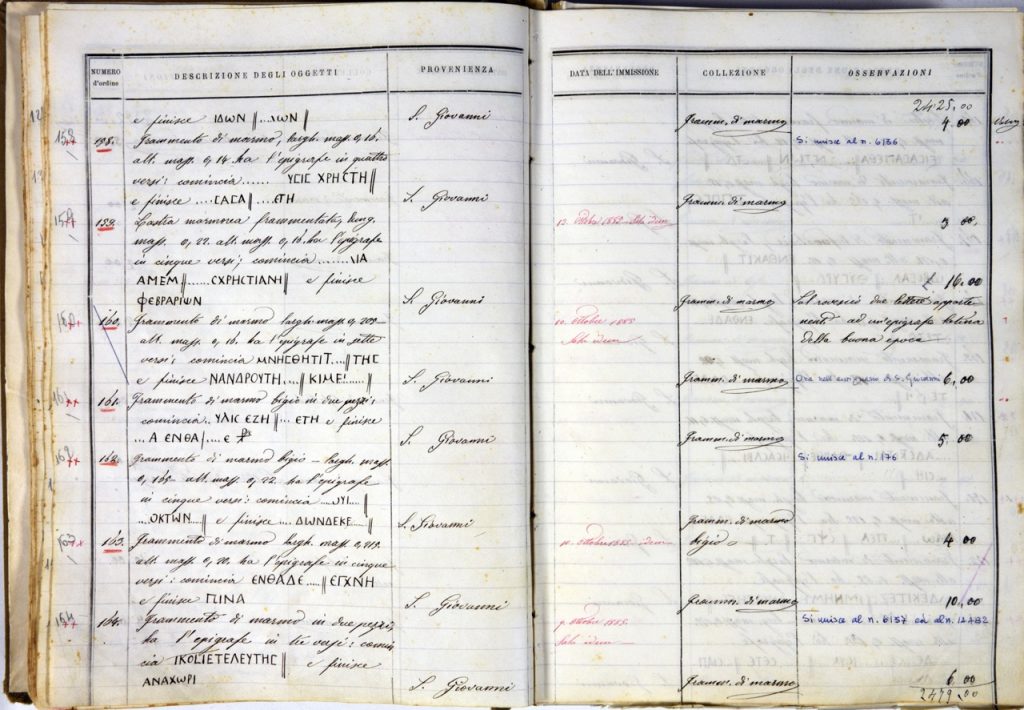 NUMERO
d'ordine
DESCRIZIONE DEGLI OGGETTI
PROVENIENZA
e finisce ΙΔΩΝ ||....ΛΩΝ||
S. Giovanni
158
158. Frammento di marmo, largh. mass. 0,16.
alt. mass. 0,14. ha l'epigrafe in quattro
versi: comincia ...... ΥCΙC ΧΡΗCΤΗ||
e finisce ....CΑCΑ|....ΕΤΗ
S. Giovanni
159. Lastra marmorea frammentata, lung.
mass. 0,22. alt. mass. 0,16. ha l'epigrafe
in cinque versi; comincia ........ΛΙΑ
ΑΜΕΜ||....CΧΡΗCΤΙΑΝΙ|| e finisce
ΦΕΒΡΑΡΙΩΝ
S. Giovanni
160
160. Frammento di marmo largh. mass. 0,209
alt. mass. 0,16. ha l'epigrafe in sette
versi: comincia ΜΝΗCΘΗΤΙΤ....||ΤΗC
e finisce ΝΑΝΔΡΟΥΤΗ....||ΚΙΜΕΙ......||
S. Giovanni
161. Frammento di marmo bigio in due pezzi:
comincia.. ΥΛΙC ΕΖΗ ||.... ΕΤΗ e finisce
...Α ΕΝΘΑ|....Ε ☧
S. Giovanni
162
162. Frammento di marmo bigio – largh. mass.
0,165 alt. mass. 0,22. ha l'epigrafe
in cinque versi: comincia .....ΥΙ....||
...ΟΚΤΩΝ....|| e finisce ... ΔΩΝΔΕΚΕ....||
S. Giovanni
163
163. Frammento di marmo largh. mass. 0,119.
alt. mass. 0,20. ha l'epigrafe in cinque
versi: comincia ΕΝΘΑΔΕ.....||ΕΓΧΝΗ
e finisce ΠΙΝΑ
S. Giovanni
164
164. Frammento di marmo in due pezzi,
ha l'epigrafe in tre versi: comin
cia ΙΚΟΙΕΤΕΛΕΥΤΗC || e finisce
ΑΝΑΧΩΡΙ
S. Giovanni
DATA DELL'IMMISSIONE
COLLEZIONE
OSSERVAZIONI
2425.00
Framm. di marmo
4.00
Si unisce al n. 6136
Framm. di marmo
5.00
16.00
Framm. di marmo
10. Ottobre 1885
Sala idem
Al rovescio due lettere apparte
nenti ad un'epigrafe latina
della buona epoca
Framm. di marmo
Ora nell'antiquario di S. Giovanni
6.00
Framm. di marmo
5.00
Si unisce al n. 176
Framm. di marmo
bigio
4.00
Framm. di marmo
10.00
9. Ottobre 1885.
Sala idem
Si unisce al n. 6157 ed al n. 14482
Framm. di marmo
6.00
2479.00